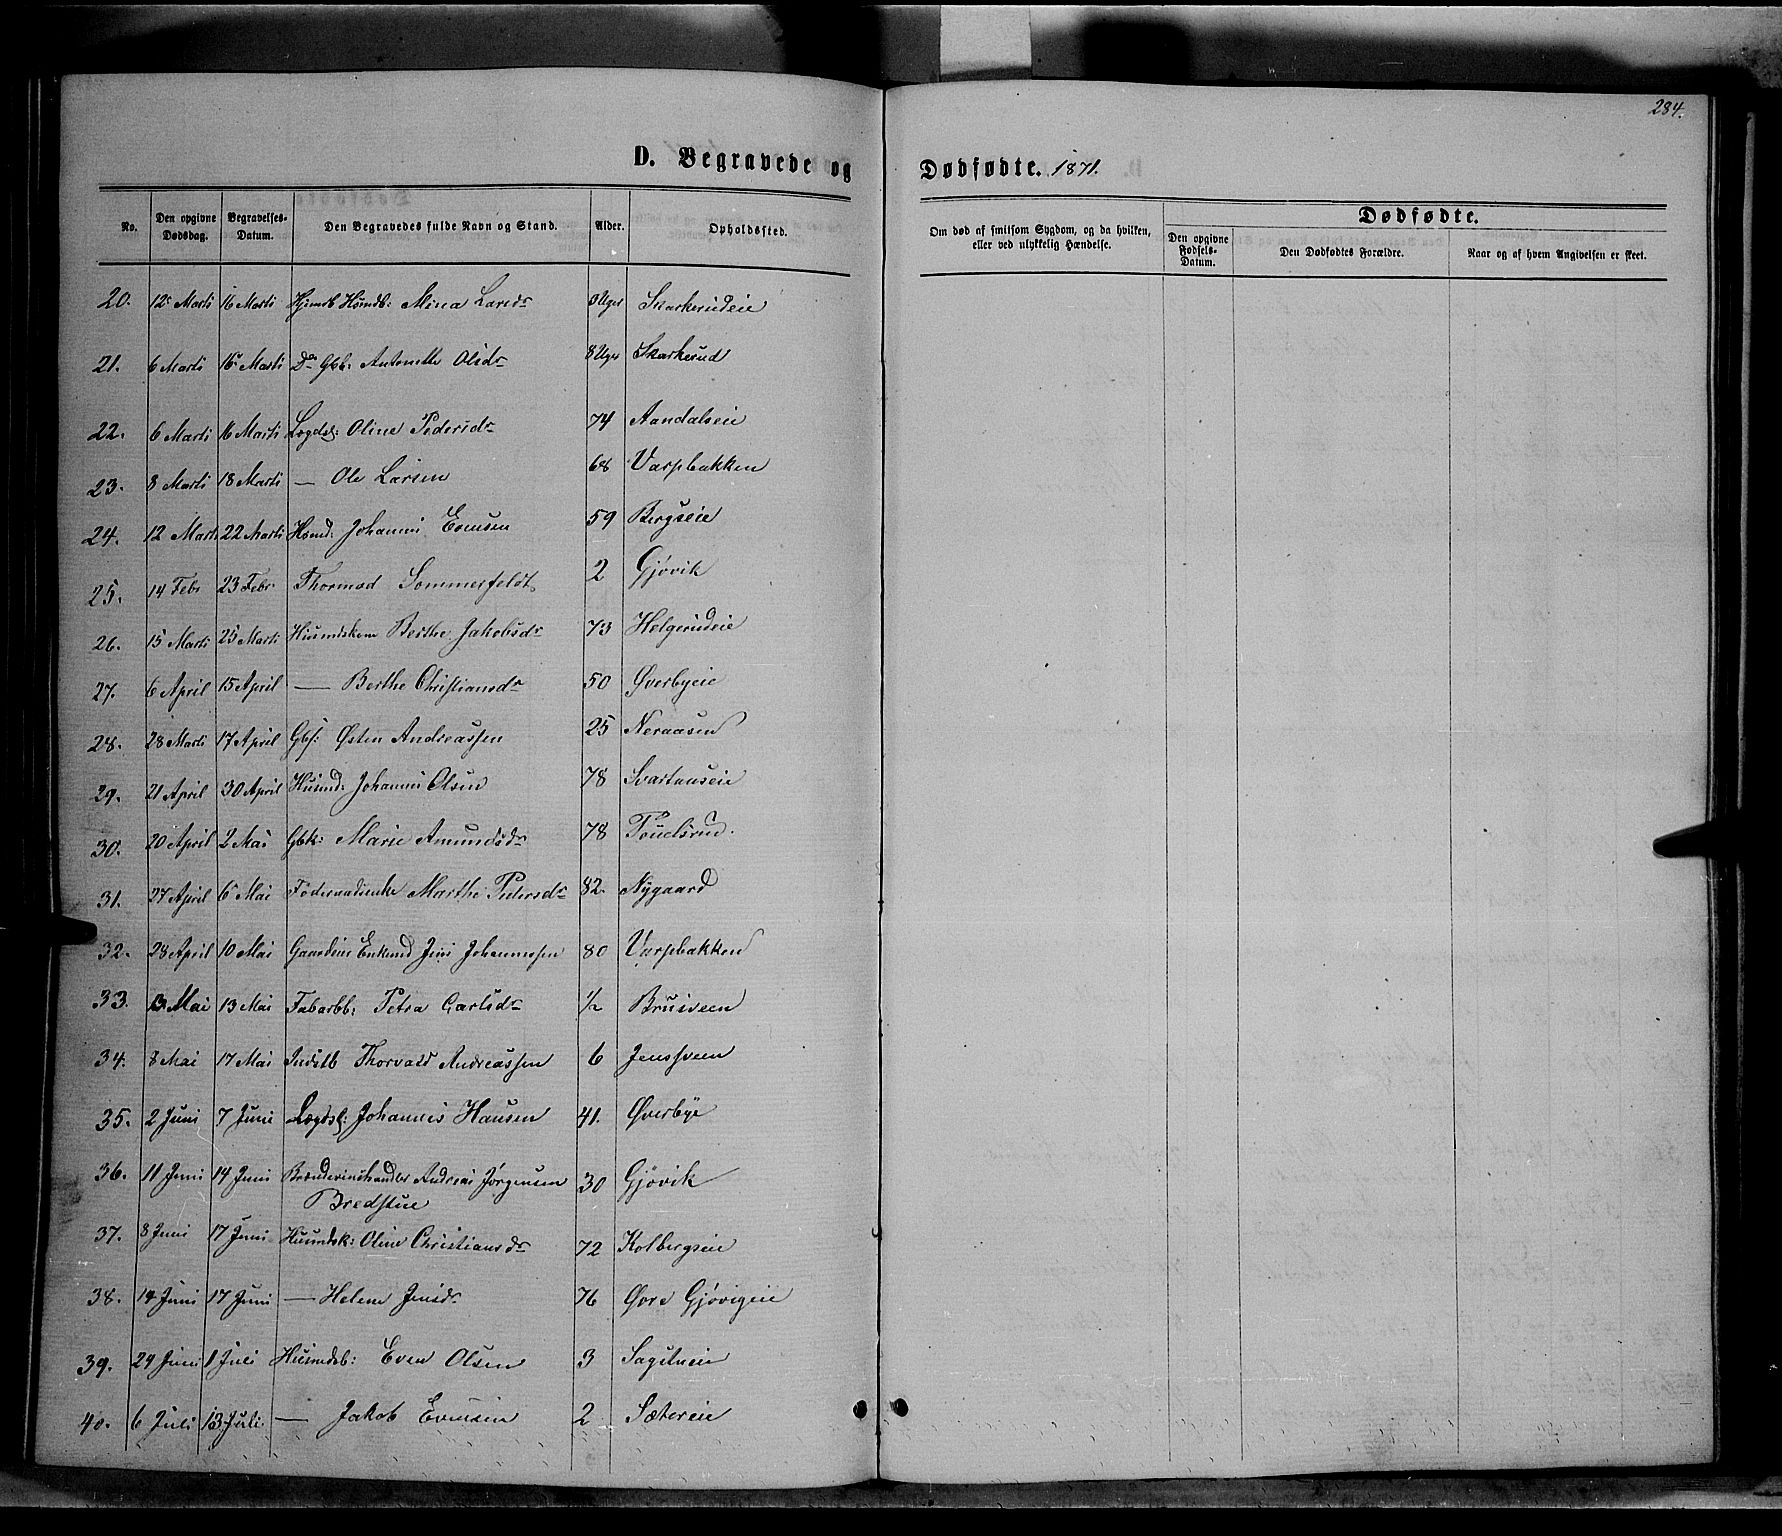 284.
D. Begravede og Dødfødte. 1871.
No. Den opgivne Dødsdag. Begravelses-Datum. Den Begravedes fulde Navn og Stand. Alder. Opholdssted. Om død af smitsom Sygdom, og da hvilken, eller ved ulykkelig Hændelse. Dødfødte. Den opgivne Fødsels-Datum. Den Dødfødtes Forældre. Naar og af hvem Angivelsen er skeet.
20. 12 Marti 16 Marti Mina Larsdr 3 Uger Skarkerudeie
21. 6 Marti 16 Marti Do Gbb: Antonette Olsdr 8 Uger Skarkerud
22. 6 Marti 16 Marti Lægdsl: Oline Pedersdr 74 Aandalseie
23. 8 Marti 18 Marti — Ole Larsen 68 Varpbakken
24. 12 Marti 22 Marti Husmd: Johannes Evensen 59 Bergseie
25. 14 Febr 23 Febr Thormod Sommerfeldt 2 Gjøvik
26. 15 Marti 25 Marti Husmdskone Berthe Jakobsdr 73 Helgerudeie
27. 6 April 15 April — Berthe Christiansdr 50 Øverbyeie
28. 28 Marti 17 April Gbs: Østen Andreassen 25 Neraasen
29. 21 April 30 April Husmd: Johannes Olsen 78 Svartauseie
30. 20 April 2 Mai Gbk: Marie Amundsdr 78
31. 27 April 6 Mai Føderaadsenke Marthe Pedersdr 82 Nygaard
32. 28 April 10 Mai Gaardeier Enkemd Jens Johannessen 80 Varpbakken
33. 13 Mai 13 Mai Fabarbb: Petra Carlsdr 1/2 Bruсveen
34. 8 Mai 17 Mai Indstb Thorvald Andreassen 6 Jensveen
35. 2 Juni 7 Juni Lægdsl: Johannes Hansen 41. Øverbye
36. 11 Juni 14 Juni Brændeviinshandler Andreas Jørgensen 30 Gjøvik
Bredstue
37. 8 Juni 17 Juni Husmdsk: Oline Christiansdr 72 Kolbergseie
38. 14 Juni 17 Juni — Helene Jensdr 76 Øvre Gjøvigeie
39. 24 Juni 1 Juli Husmdsb: Even Olsen 3
40. 6 Juli 13 Juli — Jakob Evensen 2 Sætereie